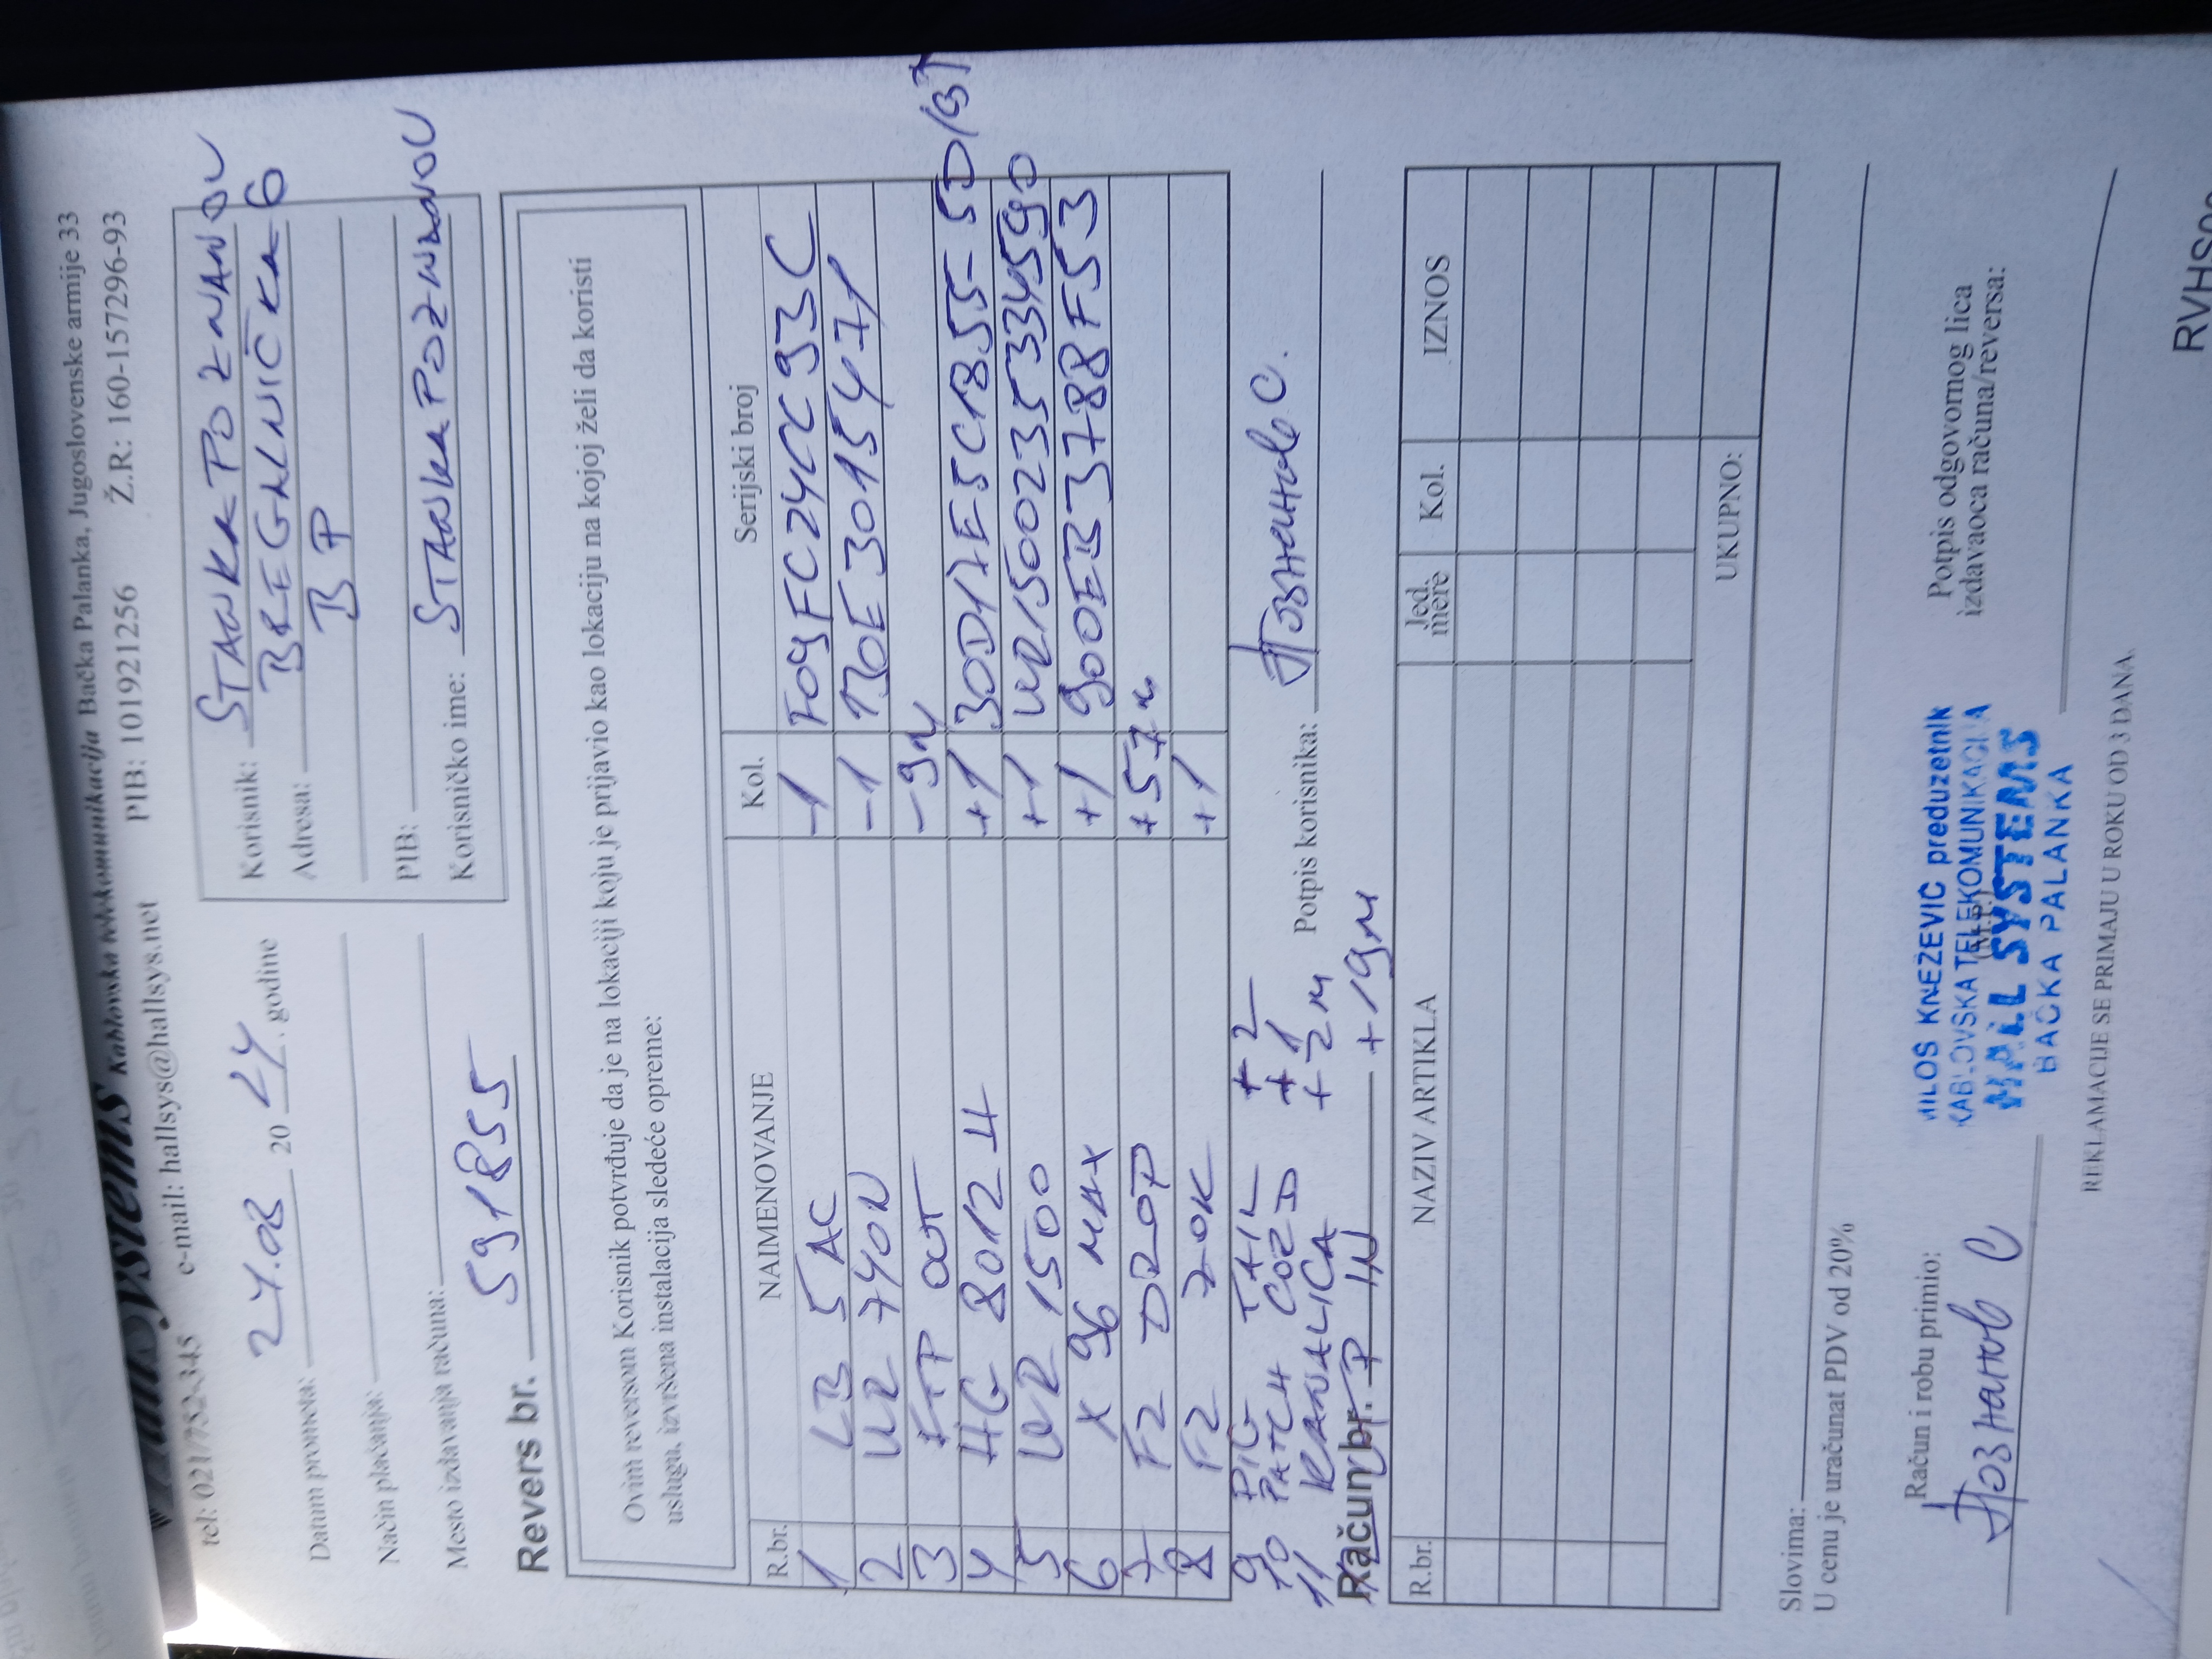 HallSystems Kablovska telekomunikacija Bačka Palanka, Jugoslovenske armije 33
tel: 021/752-345 e-mail: hallsys@hallsys.net PIB: 101921256 Ž.R.: 160-157296-93
Datum prometa: 24.08 20 24. godine
Način plaćanja:
Mesto izdavanja računa:
Korisnik: STANKA POZNANOV
Adresa: BREGALNIČKA 6
BP
PIB:
Korisničko ime: STANKA POZNANOV
Revers br. 591855
Ovim reversom Korisnik potvrđuje da je na lokaciji koju je prijavio kao lokaciju na kojoj želi da koristi
uslugu, izvršena instalacija sledeće opreme:
R.br. NAIMENOVANJE Kol. Serijski broj
1 LB 5AC -1 F09FC24CC93C
2 WR 740N -1 170E3015471
3 FTP OUT -9m
4 HG 8012H +1 30D17E5C1855-5D/BT
5 WR 1500 +1 WR1500235334590
6 X 96 MAX +1 900EB3788F53
7 FZ DROP +57m
8 FZ ZOK +1
9 PIG TAIL +2
10 PATCH CORD +1
11 KANALICA +2m
UTP IN +19m
Potpis korisnika: Познанов С.
Račun br.
R.br. NAZIV ARTIKLA Jed. mere Kol. IZNOS
UKUPNO:
Slovima:
U cenu je uračunat PDV od 20%
Račun i robu primio:
Познанов С
MILOŠ KNEŽEVIĆ preduzetnik
KABLOVSKA TELEKOMUNIKACIJA
HALL SYSTEMS
BAČKA PALANKA
Potpis odgovornog lica
izdavaoca računa/reversa:
REKLAMACIJE SE PRIMAJU U ROKU OD 3 DANA.